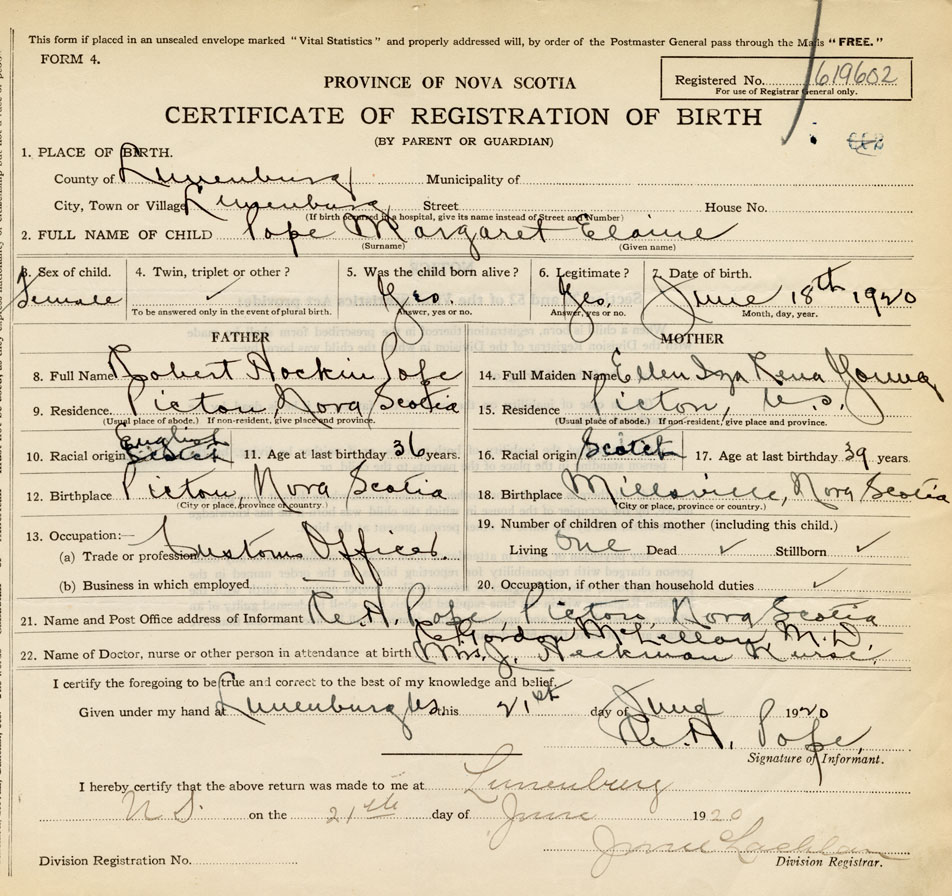 This form if placed in an unsealed envelope marked "Vital Statistics" and properly addressed will, by order of the Postmaster General pass through the Mails "FREE."
FORM 4.
Registered No. 619602
For use of Registrar General only.
PROVINCE OF NOVA SCOTIA
CERTIFICATE OF REGISTRATION OF BIRTH
(BY PARENT OR GUARDIAN)
1. PLACE OF BIRTH.
County of Lunenburg Municipality of
City, Town or Village Lunenburg Street House No.
(If birth occurred in a hospital, give its name instead of Street and Number)
2. FULL NAME OF CHILD Pope Margaret Elaine
(Surname) (Given name)
3. Sex of child. 4. Twin, triplet or other? 5. Was the child born alive? 6. Legitimate? 7. Date of birth.
Female ✓ Yes. Yes, June 18th 1920
To be answered only in the event of plural birth. Answer, yes or no. Answer, yes or no. Month, day, year.
FATHER MOTHER
8. Full Name Robert Hockin Pope 14. Full Maiden Name Ellen Iza Rena Young
9. Residence. Pictou, Nova Scotia 15. Residence Pictou, N.S.
(Usual place of abode.) If non-resident, give place and province. (Usual place of abode.) If non-resident, give place and province.
English
10. Racial origin Scotch 11. Age at last birthday 36 years. 16. Racial origin Scotch 17. Age at last birthday 39 years.
12. Birthplace Pictou, Nova Scotia 18. Birthplace Millsville, Nova Scotia
(City or place, province or country.) (City or place, province or country.)
13. Occupation:— 19. Number of children of this mother (including this child.)
(a) Trade or profession Customs Officer. Living One Dead ✓ Stillborn ✓
(b) Business in which employed 20. Occupation, if other than household duties ✓
21. Name and Post Office address of Informant R. H. Pope, Pictou, Nova Scotia
Gordon McLellan M.D.
22. Name of Doctor, nurse or other person in attendance at birth Mrs. J. Heckman Nurse.
I certify the foregoing to be true and correct to the best of my knowledge and belief.
Given under my hand at Lunenburg NS this 21st day of June 1920
R. H. Pope,
Signature of Informant.
I hereby certify that the above return was made to me at Lunenburg
N S. on the 21th day of June 1920
Division Registration No. Division Registrar.